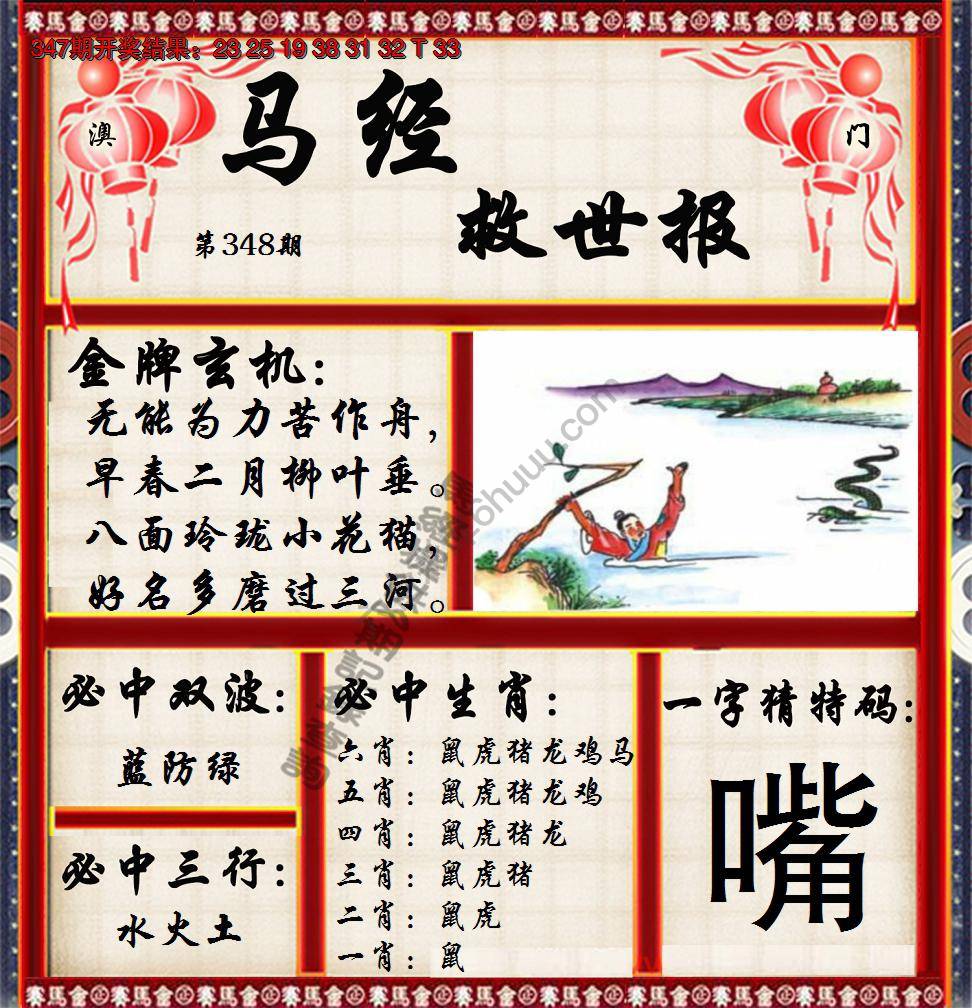 347期开奖结果：23 25 19 38 31 32 T 33
澳
门
马经
救世报
第348期
金牌玄机：
无能为力苦作舟，
早春二月柳叶垂。
八面玲珑小花猫，
好名多磨过三河。
必中双波：
蓝防绿
必中三行：
水火土
必中生肖：
六肖：鼠虎猪龙鸡马
五肖：鼠虎猪龙鸡
四肖：鼠虎猪龙
三肖：鼠虎猪
二肖：鼠虎
一肖：鼠
一字猜特码：
嘴